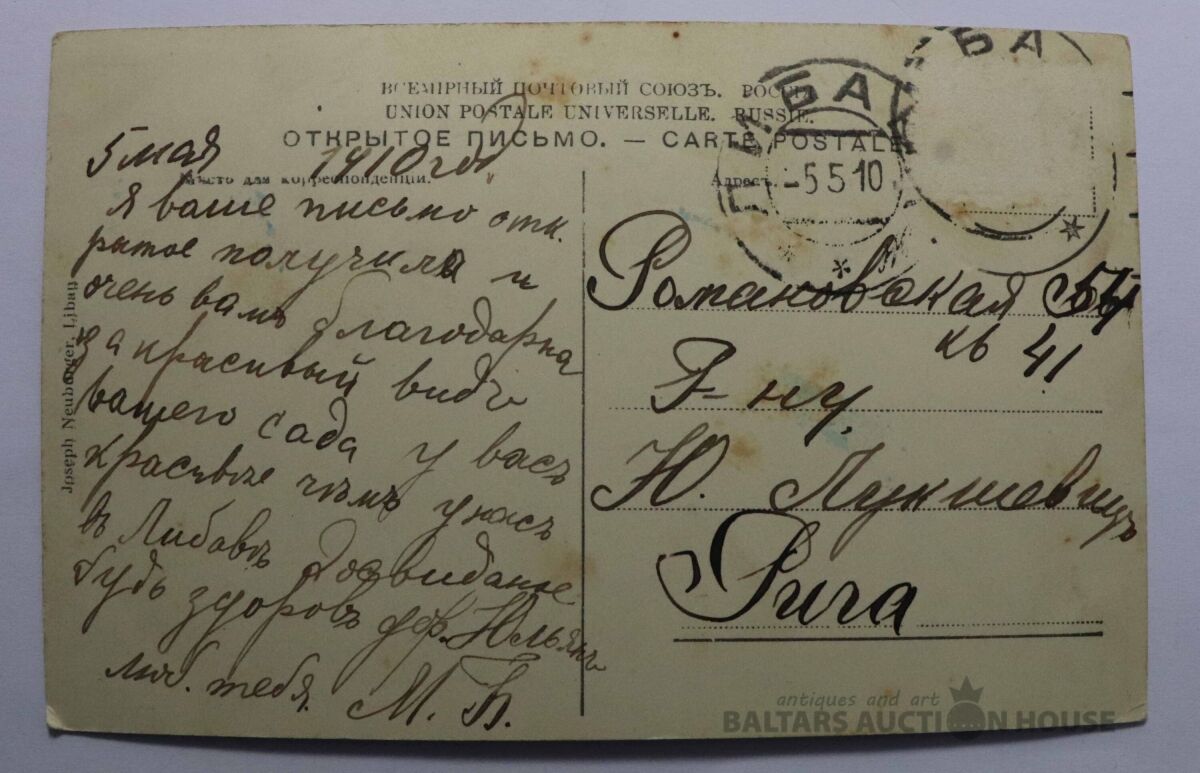 ВСЕМІРНЫЙ ПОЧТОВЫЙ СОЮЗЪ. РОССІЯ.
UNION POSTALE UNIVERSELLE. RUSSIE.
ОТКРЫТОЕ ПИСЬМО. — CARTE POSTALE
Мѣсто для корреспонденціи.
Адресъ.
5 мая 1910 года
Я ваше письмо отк.
рытое получила и
очень вамъ благодарна
за красивый видъ
вашего сада у васъ
красивее чѣмъ у насъ
въ Либавѣ Досвиданье
будь здоровъ Юльянъ
люб. тебя. М. Б.
Романовская 54
кв 41
Г-ну.
Ю. Лукшевицъ
Рига
ЛИБАВА
-5 5 10
БА
Joseph Neuberger, Libau
antiques and art
BALTARS AUCTION HOUSE